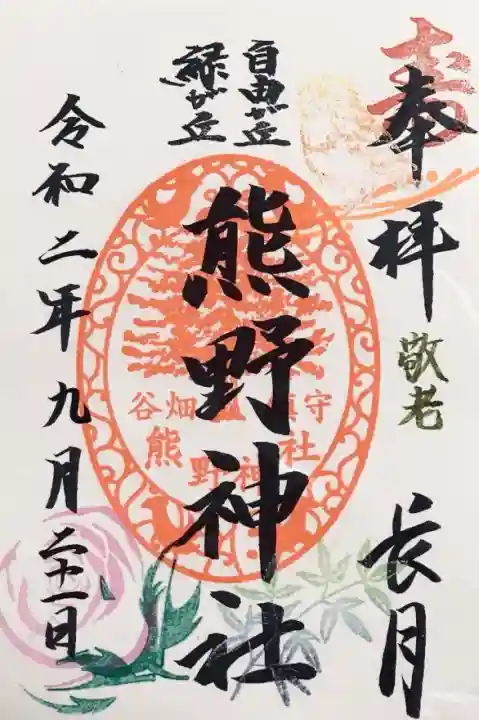 寿
奉拝
敬老
長月
自由が丘
緑が丘
熊野神社
谷畑 鎮守
熊野神社
令和二年九月二十一日